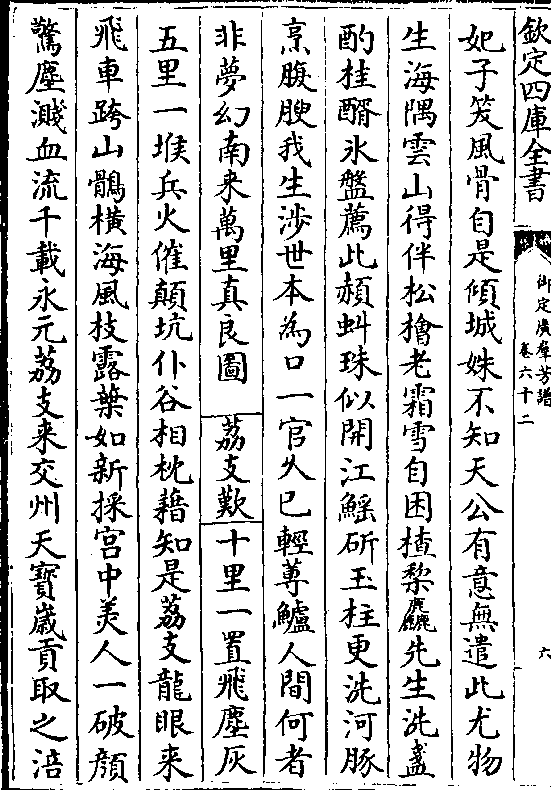 欽定四庫全書
御定廣羣芳譜
卷六十二
六
妃子笑風骨自是傾城姝不知天公有意無遣此尤物
生海隅雲山得伴松檜老霜雪自困楂棃麤先生洗盞
酌桂醑氷盤薦此赬虯珠似開江鰩斫玉柱更洗河豚
烹腹腴我生涉世本為口一官久已輕蓴鱸人間何者
非夢幻南来萬里真良圖 荔支歎 十里一置飛塵灰
五里一堠兵火催顛坑仆谷相枕藉知是荔支龍眼来
飛車跨山鶻橫海風枝露葉如新採宮中美人一破顔
驚塵濺血流千載永元荔支来交州天寶歲貢取之涪